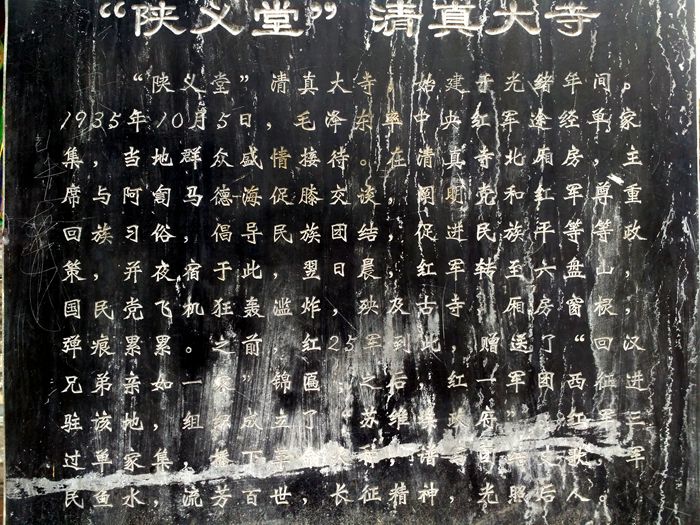 “陕义堂”清真大寺
“陕义堂”清真大寺，始建于光绪年间。
1935年10月5日，毛泽东率中央红军途经单家
集，当地群众盛情接待。在清真寺北厢房，主
席与阿訇马德海促膝交谈，阐明党和红军尊重
回族习俗，倡导民族团结，促进民族平等政
策，并夜宿于此。翌日晨，红军转至六盘山，
国民党飞机狂轰滥炸，殃及古寺，厢房窗根
弹痕累累。之前，红25军到此，赠送了“回汉
兄弟亲如一家”锦匾；之后，红一军团西征进
驻该地，组织成立了“苏维埃政府”。红军三
过单家集，播下
民鱼水，流芳百世，长征精神，光照后人。